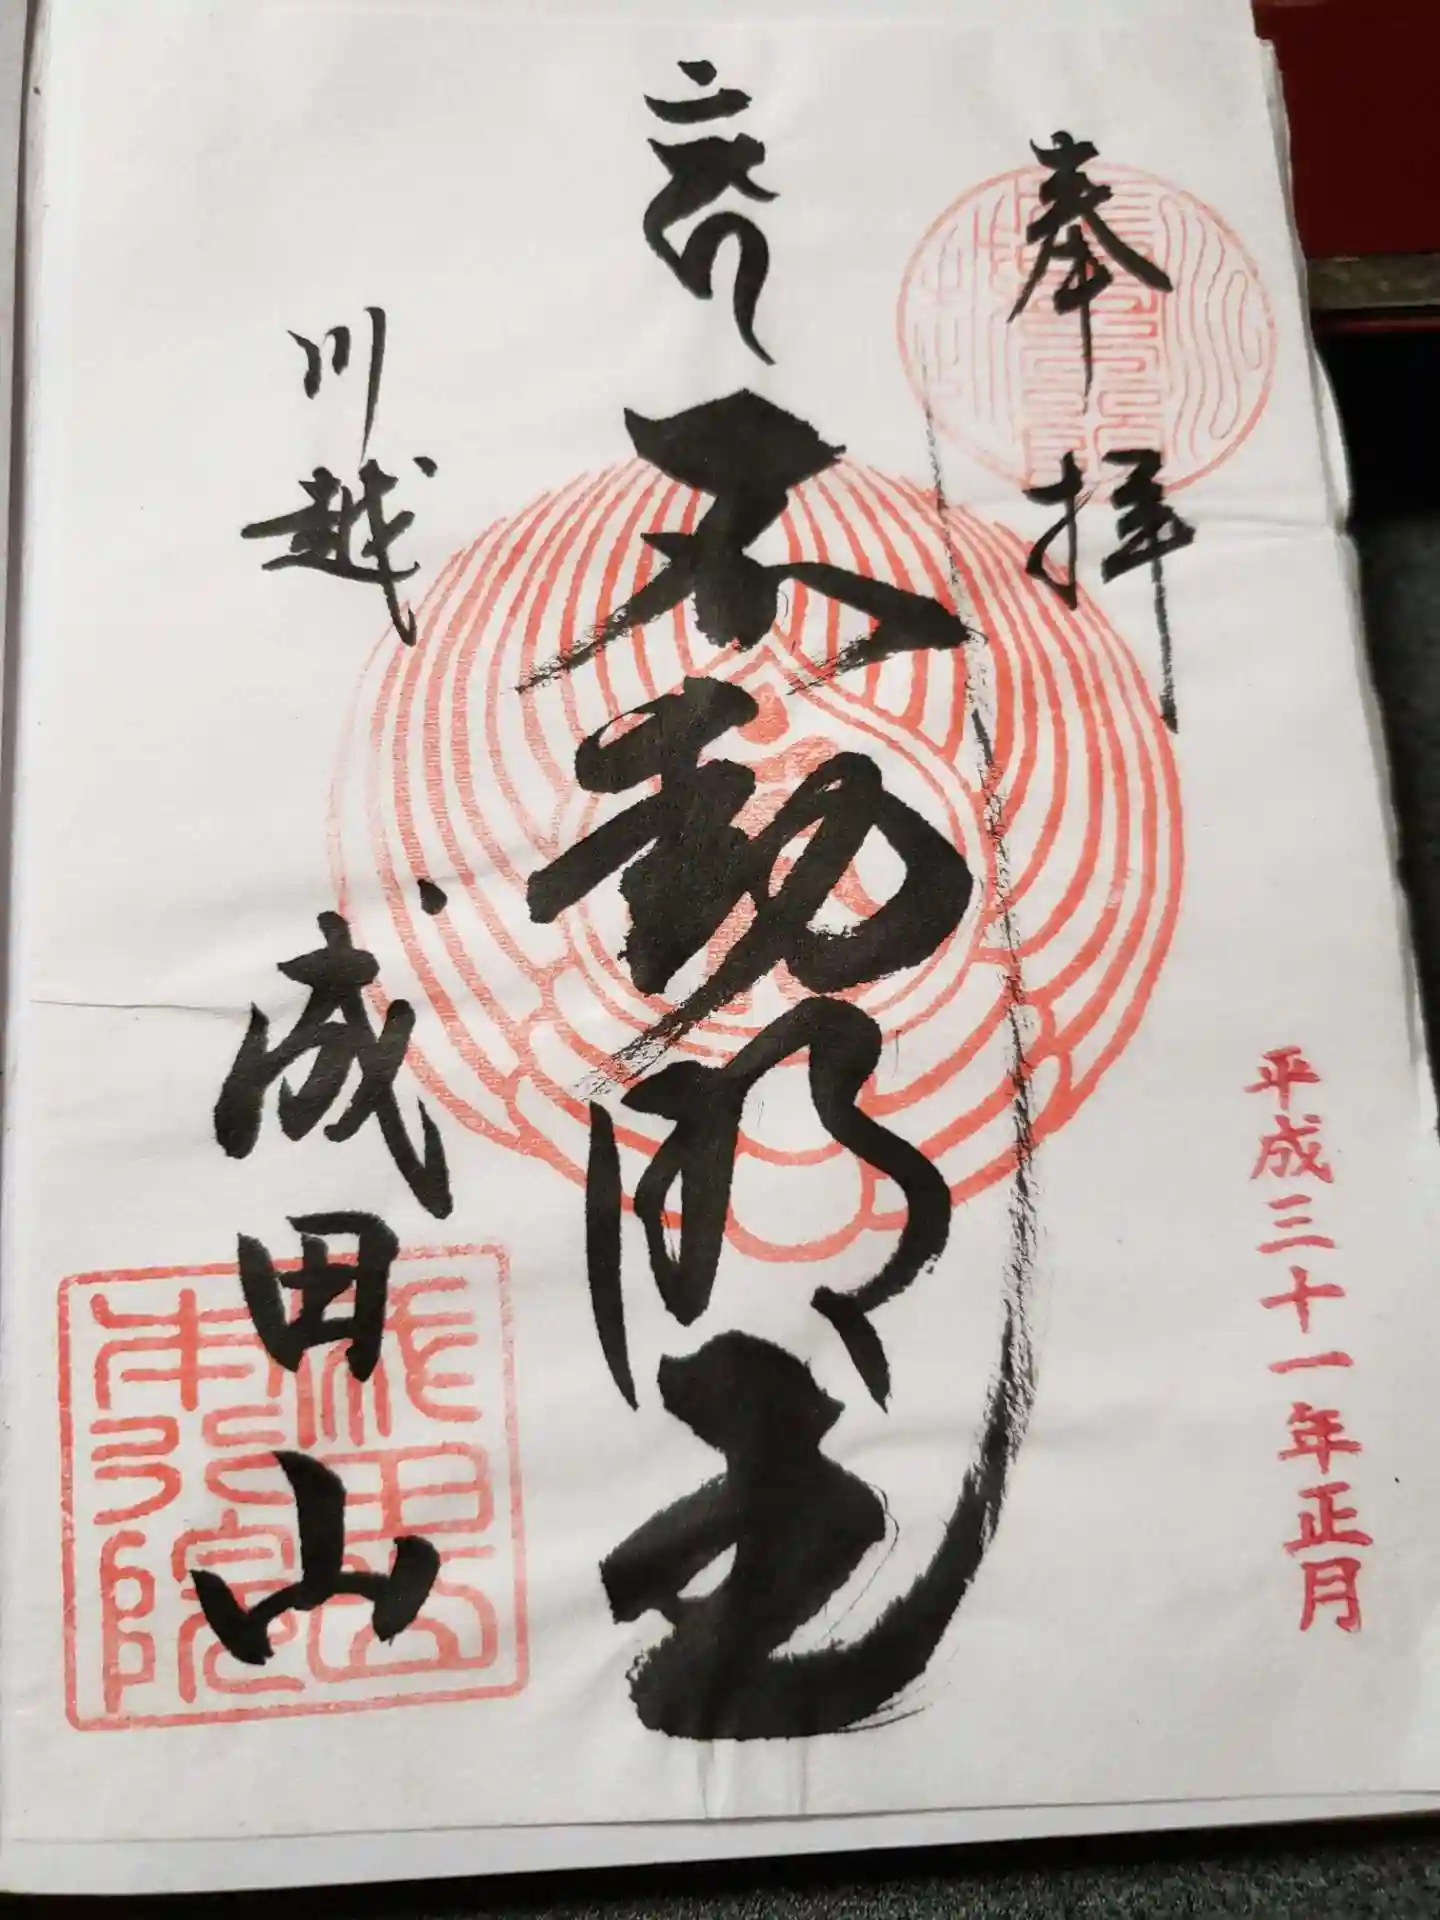 奉拝
平成三十一年正月
不動明王
川越
成田山
成田山
本行院